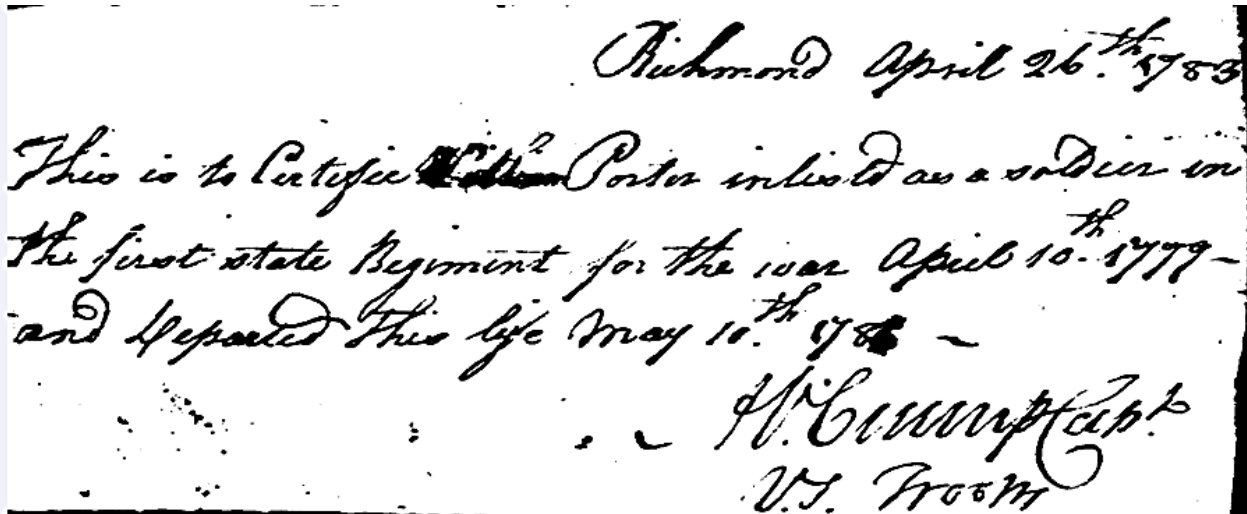 Richmond April 26.th 1783
This is to Certifie Porter inlistd as a soldier in
the first state Regiment for the war April 10.th 1779-
and Departed this life May 10.th
Crump Capt.
V.S.